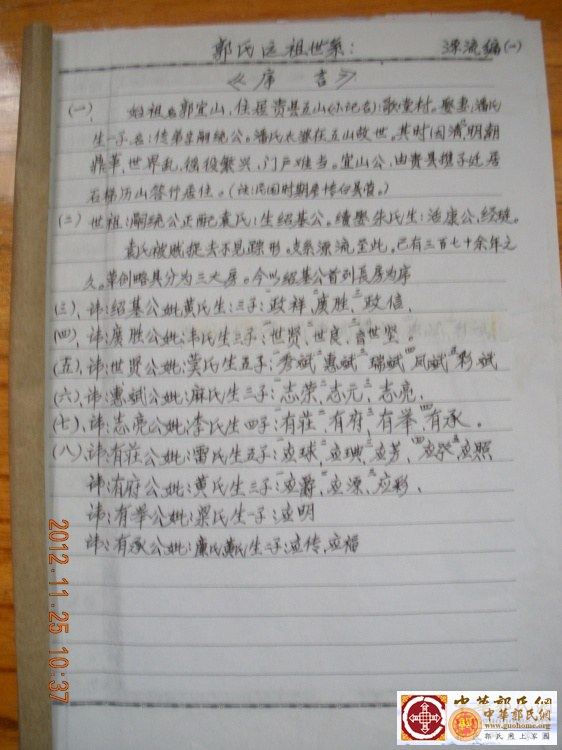 郭氏迁祖世系: 源流编(一)
《序 言》
(一)、 始祖名郭宜山,住授贵县五山(小记名)歌堂村。娶妻:潘氏
生一子名:传弟宗嗣统公。潘氏长媳在五山故世。其时因清明朝
鼎革,世界乱,徭役繁兴,门户难当。宜山公,由贵县携子迁居
石梯历山答竹居住。(注:民国时期
(二)世祖:嗣统公正配袁氏:生绍基公。续娶朱氏生:治康公,经琏。
袁氏被贼捉去不见踪形。支系源流至此,已有三百七十余年之
久。草创略具分为三大房。今以绍基公首列長房为序
(三)、讳:绍基公妣黄氏生:三子:政祥、廣胜、政信、
(四)、讳:廣胜公妣:韦氏生三子:世贤、世良、世坚。
(五)、讳:世贤公妣:蒙氏生五子:秀斌、惠斌、瑞斌、凤斌、彩斌
(六)、讳:惠斌公妣:麻氏生三子:志荣、志元、志亮、
(七)、讳:志亮公妣:李氏生四子:有莊、有府、有举、有承。
(八)、讳:有莊公妣:雷氏生五子:应球、应琠、应芳、应癸、应照
讳:有府公妣:黄氏生三子:应爵、应源、应彩、
讳:有举公妣:梁氏生一子:应明
讳:有承公妣:廉氏黄氏生二子:应传、应福
2012.11.25 10:37
中華郭氏網
中華郭氏網
www.guohome.org
郭氏网上家园